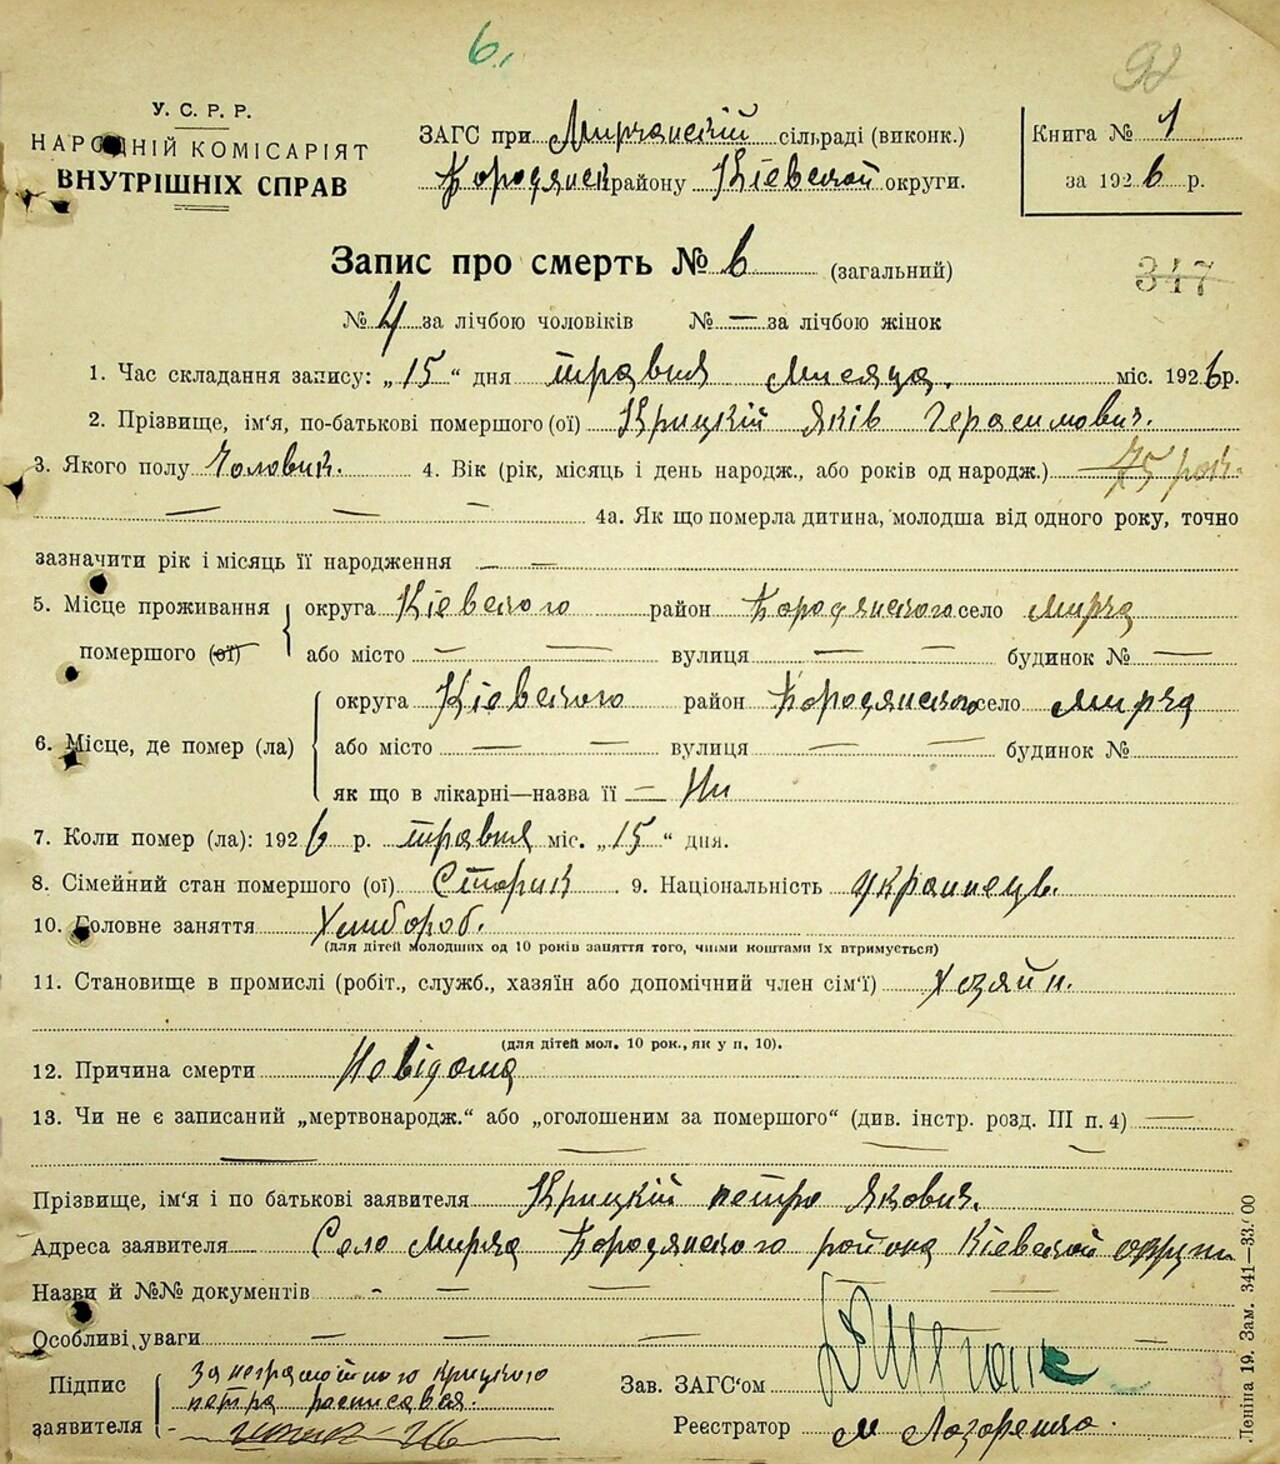 6.
92
У. С. Р. Р.
НАРОДНІЙ КОМІСАРІЯТ
ВНУТРІШНІХ СПРАВ
ЗАГС при Мирчанскій сільраді (виконк.)
Бородянск району Кіевской округи.
Книга № 1
за 1926 р.
Запис про смерть № 6 (загальний)
347
№ 4 за лічбою чоловіків № — за лічбою жінок
1. Час складання запису: „15“ дня травня мисяца. міс. 1926 р.
2. Прізвище, ім'я, по-батькові помершого (ої) Крицкій Яків Герасимович.
3. Якого полу Чоловик. 4. Вік (рік, місяць і день народж., або років од народж.) 75 рок.
— — — 4а. Як що померла дитина, молодша від одного року, точно
зазначити рік і місяць її народження — —
5. Місце проживання помершого (ої) округа Кіевского район Бородянского село Мирча
або місто — — вулиця — — будинок № —
6. Місце, де помер (ла) округа Кіевского район Бородянского село Мирча
або місто — — вулиця — — будинок №
як що в лікарні—назва її — Ни
7. Коли помер (ла): 1926 р. травня міс. „15“ дня.
8. Сімейний стан помершого (ої) Старик. 9. Національність украинець.
10. Головне заняття Хлибороб.
(для дітей молодших од 10 років заняття того, чиїми коштами їх втримується)
11. Становище в промислі (робіт., служб., хазяїн або допомічний член сім'ї) Хозяйн.
(для дітей мол. 10 рок., як у п. 10).
12. Причина смерти Невідома
13. Чи не є записаний „мертвонародж.“ або „оголошеним за помершого“ (див. інстр. розд. III п. 4) —
— — — —
Прізвище, ім'я і по батькові заявителя Крицкій петро Якович.
Адреса заявителя Село Мирча Бородянского района Кіевской округи
Назви й №№ документів - — — —
Особливі уваги — — — —
Підпис заявителя За неграмотного Крицкого
петра росписавая.
Зав. ЗАГС'ом
Реєстратор М Лазоренко.
Леніна 19. Зам. 341—33.000